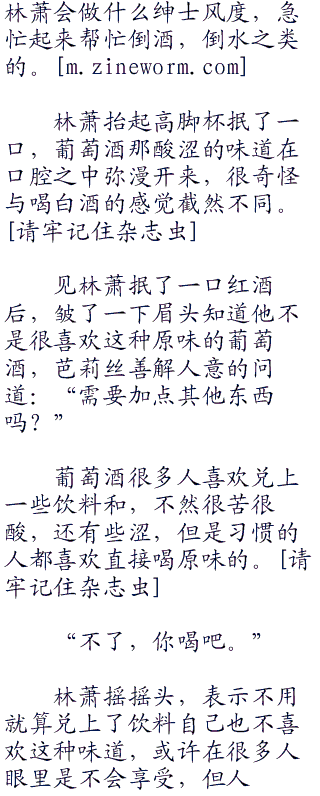 林萧会做什么绅士风度，急
忙起来帮忙倒酒，倒水之类
的。[m.zineworm.com]
林萧抬起高脚杯抿了一
口，葡萄酒那酸涩的味道在
口腔之中弥漫开来，很奇怪
与喝白酒的感觉截然不同。
[请牢记住杂志虫]
见林萧抿了一口红酒
后，皱了一下眉头知道他不
是很喜欢这种原味的葡萄
酒，芭莉丝善解人意的问
道：“需要加点其他东西
吗？”
葡萄酒很多人喜欢兑上
一些饮料和，不然很苦很
酸，还有些涩，但是习惯的
人都喜欢直接喝原味的。[请
牢记住杂志虫]
“不了，你喝吧。”
林萧摇摇头，表示不用
就算兑上了饮料自己也不喜
欢这种味道，或许在很多人
眼里是不会享受，但人